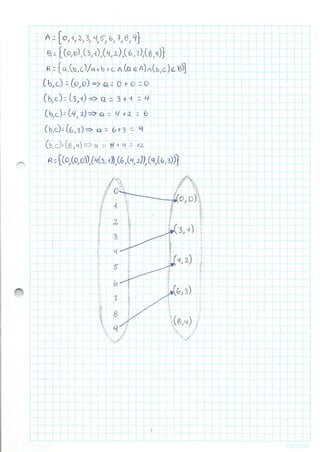 A = {0,1,2,3,4,5,6,7,8,9}
B = {(0,0),(3,1),(4,2),(6,3),(8,4)}
R = {a,(b,c)/a=b+c ∧ (a∈A)∧(b,c)∈B}
(b,c)=(0,0) => a = 0+0 = 0
(b,c)=(3,1) => a = 3+1 = 4
(b,c)=(4,2) => a = 4+2 = 6
(b,c)=(6,3) => a = 6+3 = 9
(b,c)=(8,4) => a = 8+4 = 12
R={(0,(0,0)),(4(3,1)),(6,(4,2)),(9,(6,3))}
0 (0,0)
1
2
3 (3,1)
4
5 (4,2)
6
7 (6,3)
8
9 (8,4)